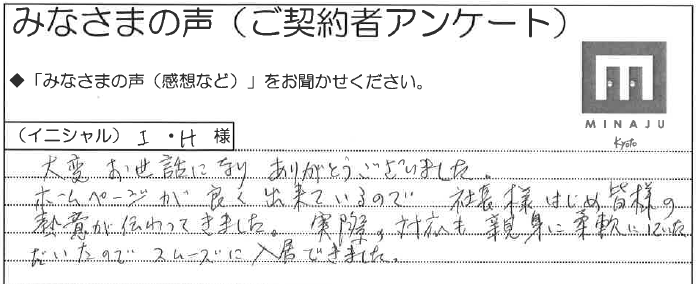 みなさまの声（ご契約者アンケート）
◆「みなさまの声（感想など）」をお聞かせください。
MINAJU
Kyoto
（イニシャル） I・H 様
大変 お世話になり ありがとうございました。
ホームページが 良く 出来ているので 社長様はじめ皆様の
熱意が伝わってきました。 実際の対応も 親身に柔軟にいた
だいたので スムーズに入居できました。